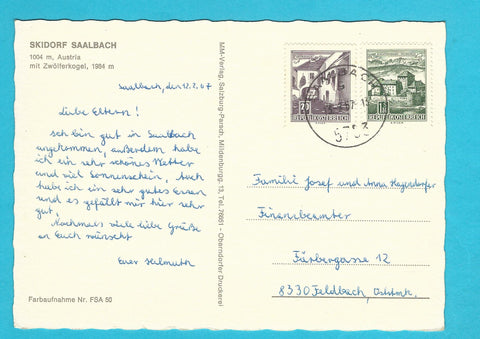 SKIDORF SAALBACH
1004 m, Austria
mit Zwölferkogel, 1984 m
Saalbach, den 12.2.67
Liebe Eltern!
Ich bin gut in Saalbach
angekommen, außerdem habe
ich ein sehr schönes Wetter
und viel Sonnenschein, Auch
habe ich ein sehr gutes Essen
und es gefällt mir hier sehr
gut.
Nochmals viele liebe Grüße
an Euch wünscht
Euer Helmuth
Farbaufnahme Nr. FSA 50
MM-Verlag, Salzburg-Parsch, Mildenburgg. 13, Tel. 76661 – Oberndorfer Druckerei
REPUBLIK ÖSTERREICH
REPUBLIK ÖSTERREICH
5753
Familie Josef und Anna Hagendorfer
Finanzbeamter
Färbergasse 12
8330 Feldbach, Oststmk.